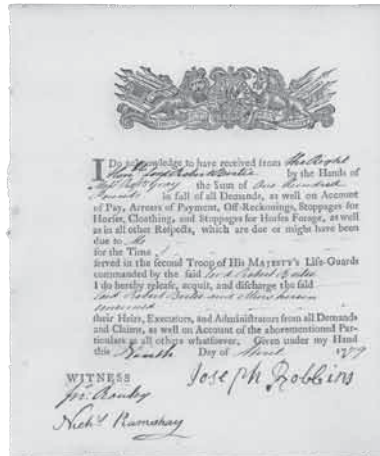 I Do acknowledge to have received from the Right
Honble Lord Robert Bertie by the Hands of
Messrs Gray the Sum of One Hundred
Pounds in full of all Demands, as well on Account
of Pay, Arrears of Payment, Off-Reckonings, Stoppages for
Horses, Cloathing, and Stoppages for Horses Forage, as well
as in all other Respects, which are due or might have been
due to Me
for the Time I
served in the second Troop of His MAJESTY's Life-Guards
commanded by the said Lord Robert Bertie
I do hereby release, acquit, and discharge the said
Lord Robert Bertie and others herein
concerned
their Heirs, Executors, and Administrators from all Demands
and Claims, as well on Account of the aforementioned Par-
ticulars as all others whatsoever. Given under my Hand
this Ninth Day of 1779
WITNESS
Joseph Robbins
Jno. Rowley
Nichs. Ramshay